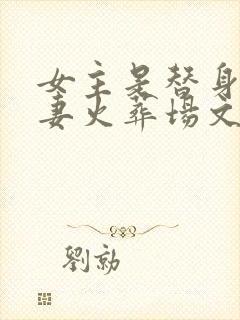 女主是替身
妻火葬場文
劉勍